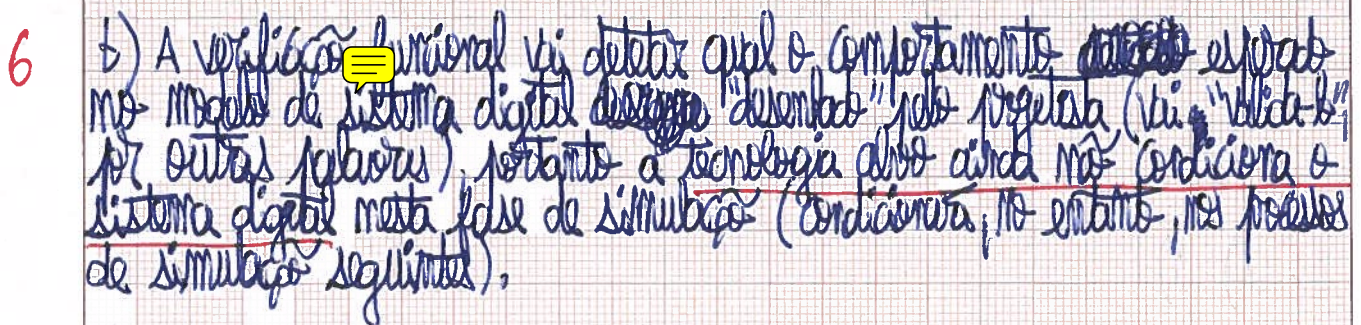 6
b) A verificação funcional vai detetar qual o comportamento esperado
no modelo de sistema digital "desenhado" pelo projetista (vai "validá-lo",
por outras palavras), portanto a tecnologia alvo ainda não condiciona o
sistema digital nesta fase de simulação (condicionará, no entanto, nos processos
de simulação seguintes).